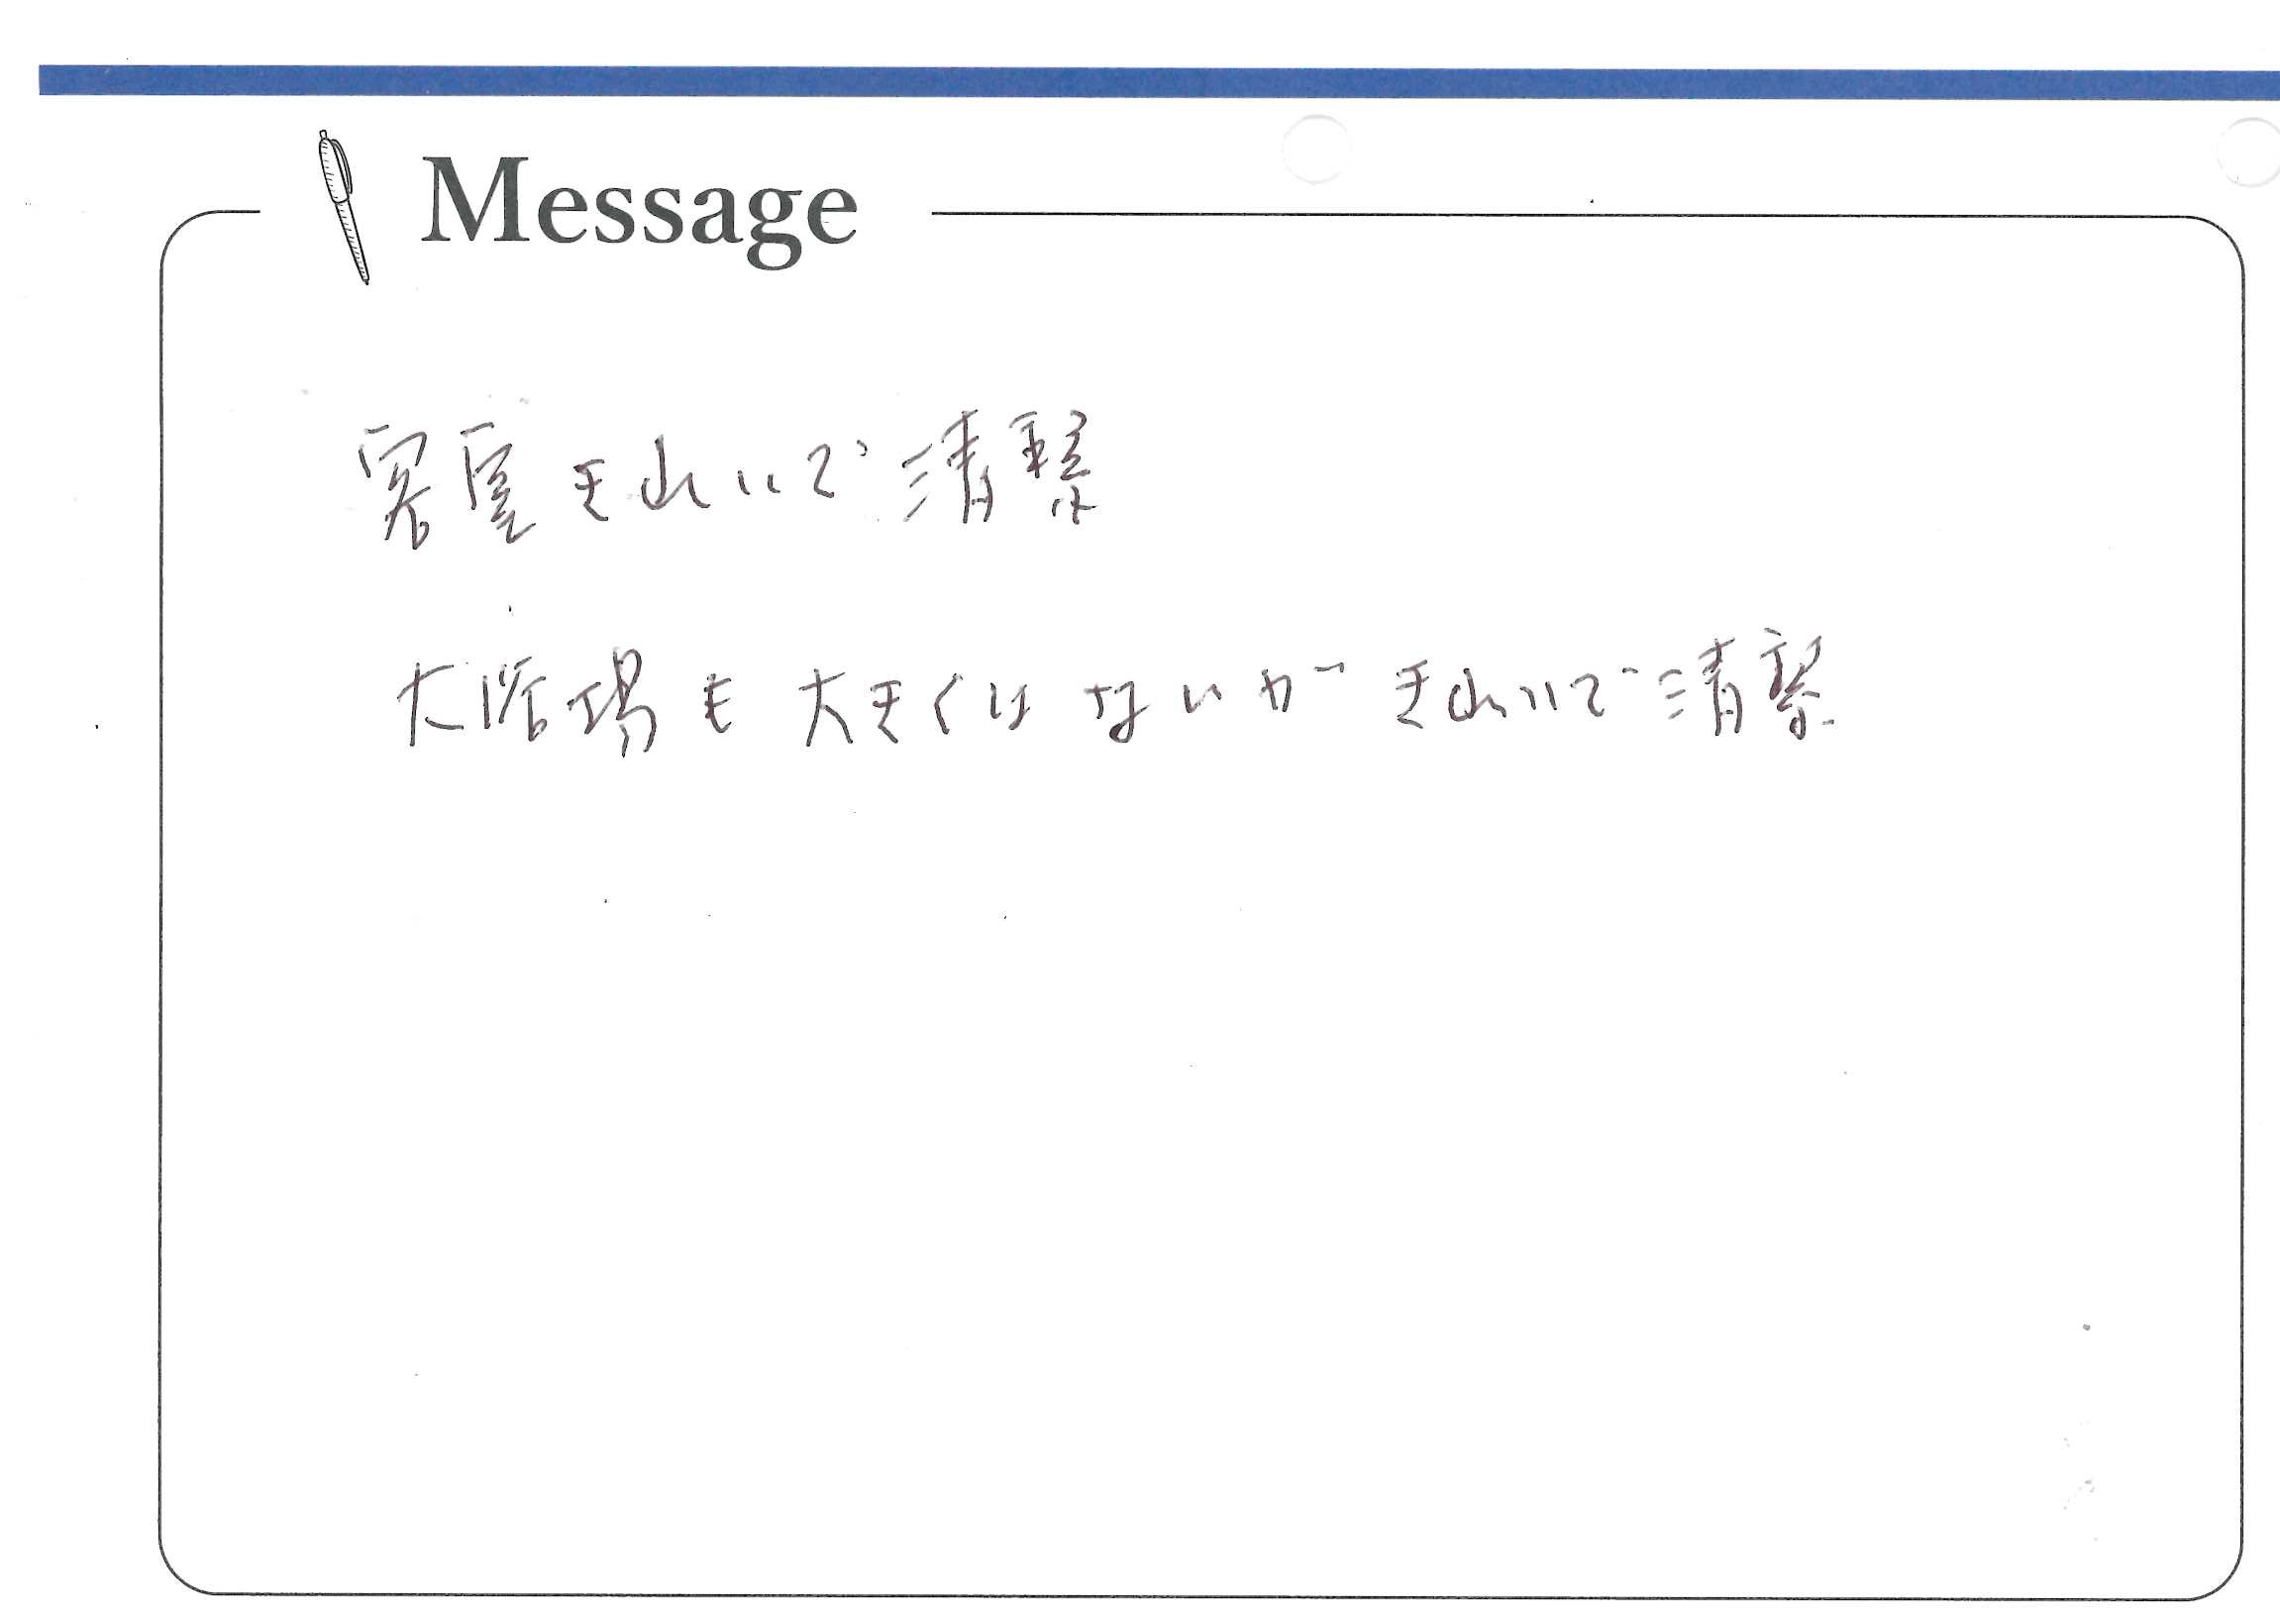 Message
客室きれいで清潔
大浴場も大きくはないがきれいで清潔